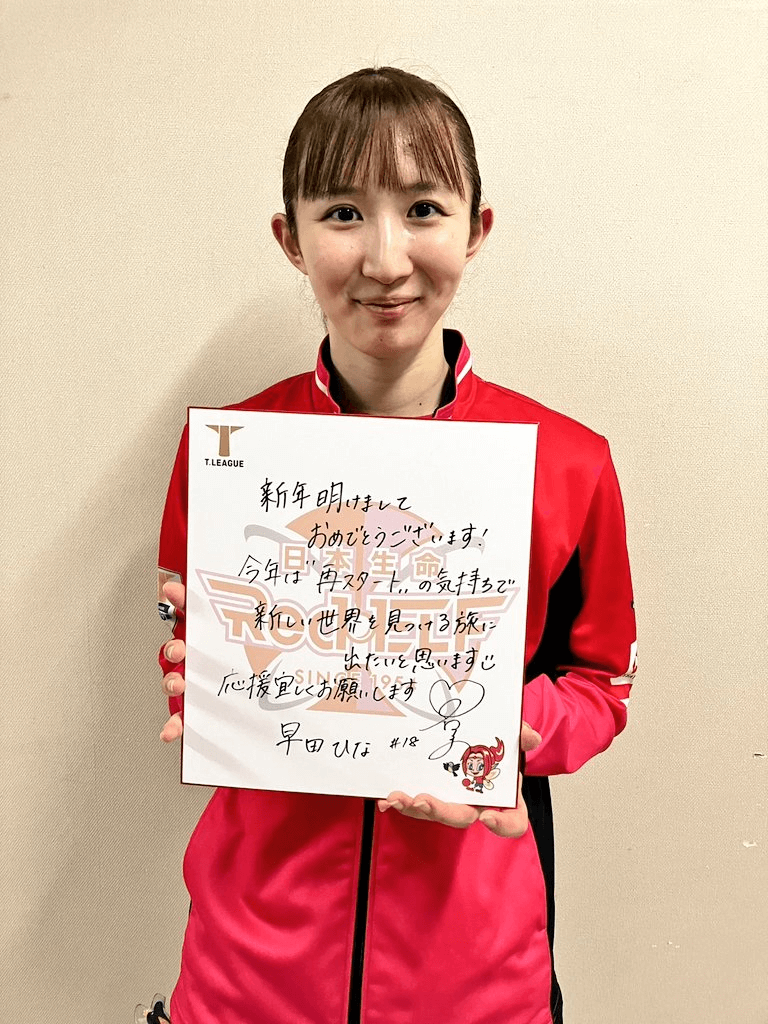 T.LEAGUE
新年明けまして
おめでとうございます!
今年は"再スタート"の気持ちで
新しい世界を見つける旅に
出たいと思います
応援宜しくお願いします
早田ひな #18
日本生命
RED ELF
SINCE 1954